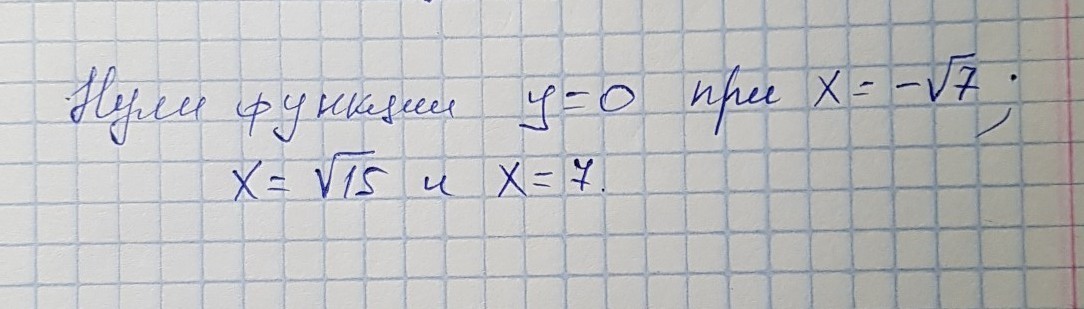 Нули функции y=0 при x=-√7;
x=√15 и x=7.